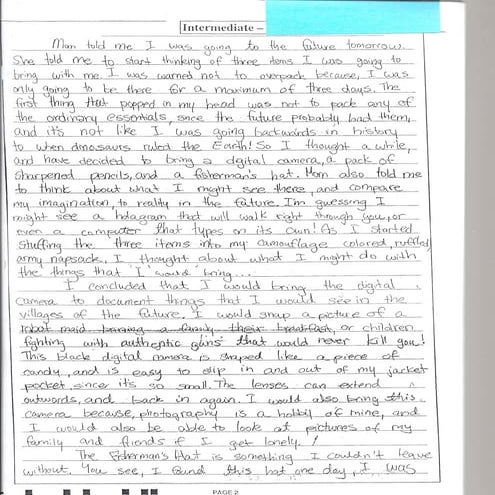 Intermediate -
Mom told me I was going to the future tomorrow.
She told me to start thinking of three items I was going to
bring with me. I was warned not to overpack because, I was
only going to be there for a maximum of three days. The
first thing that popped in my head was not to pack any of
the ordinary essentials, since the future probably had them,
and it's not like I was going backwards in history
to when dinosaurs ruled the Earth! So I thought a while,
and have decided to bring a digital camera, a pack of
sharpened pencils, and a fisherman's hat. Mom also told me
to think about what I might see there, and compare
my imagination, to reality in the future. I'm guessing I
might see a hologram that will walk right through you, or
even a computer that types on its own! As I started
stuffing the three items into my camouflage colored, ruffled,
army napsack, I thought about what I might do with
the things that I would bring...
I concluded that I would bring the digital
camera to document things that I would see in the
villages of the future. I would snap a picture of a
robot maid a family their breakfast, or children
fighting with authentic guns that would never kill you!
This black digital camera is shaped like a piece of
candy, and is easy to slip in and out of my jacket
pocket, since it's so small. The lenses can extend
outwords, and back in again. I would also bring this
camera because, photography is a hobby of mine, and
I would also be able to look at pictures of my
family and friends if I get lonely!
The Fisherman's Hat is something I couldn't leave
without. You see, I found this hat one day, I was
PAGE 2